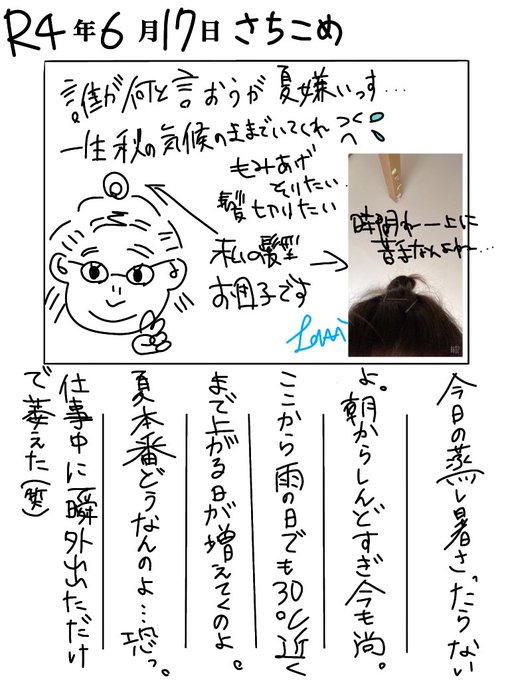 R4年6月17日 さちこめ
誰が何と言おうが夏嫌いっす…
一生秋の気候のままでいてくれ
もみあげ
そりたい
髪切りたい
私の髪型
お団子です
時間ねー上に
苦手なんよねー…
今日の蒸し暑さったらない
よ。朝からしんどすぎ今も尚。
ここから雨の日でも30℃近く
まで上がる日が増えてくのよ。
夏本番どうなんのよ…恐っ。
仕事中に一瞬外出ただけ
で萎えた(笑)